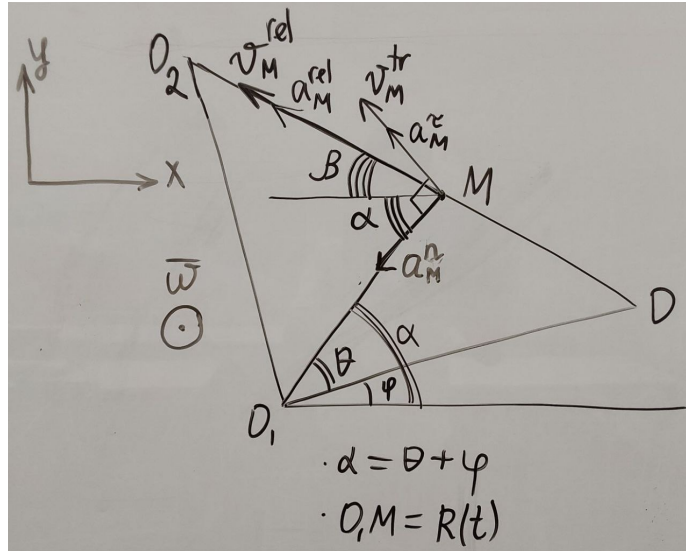 y
x
O₂
v_M^rel
a_M^rel
v_M^tr
a_M^τ
β
M
α
a_M^n
ω̅
D
α
θ
φ
O₁
· α = θ + φ
· O₁M = R(t)